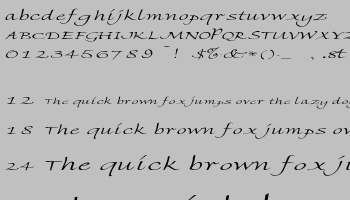 abcdefghijklmnopqrstuvwxyz
ABCDEFGHIJKLMNOPQRSTUVWXYZ
0123456789 ~! $%&*()-_ , .st
12 The quick brown fox jumps over the lazy dog
18 The quick brown fox jumps
24 The quick brown fox ju